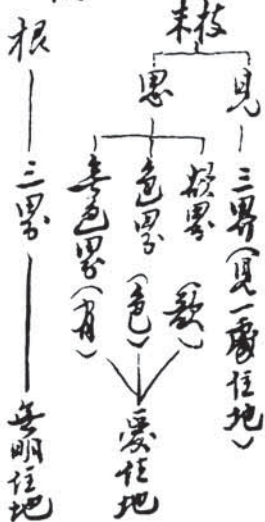 枝末
見
三界（見一處住地）
思
欲界（欲）
色界（色）
無色界（有）
愛住地
根
三界
無明住地